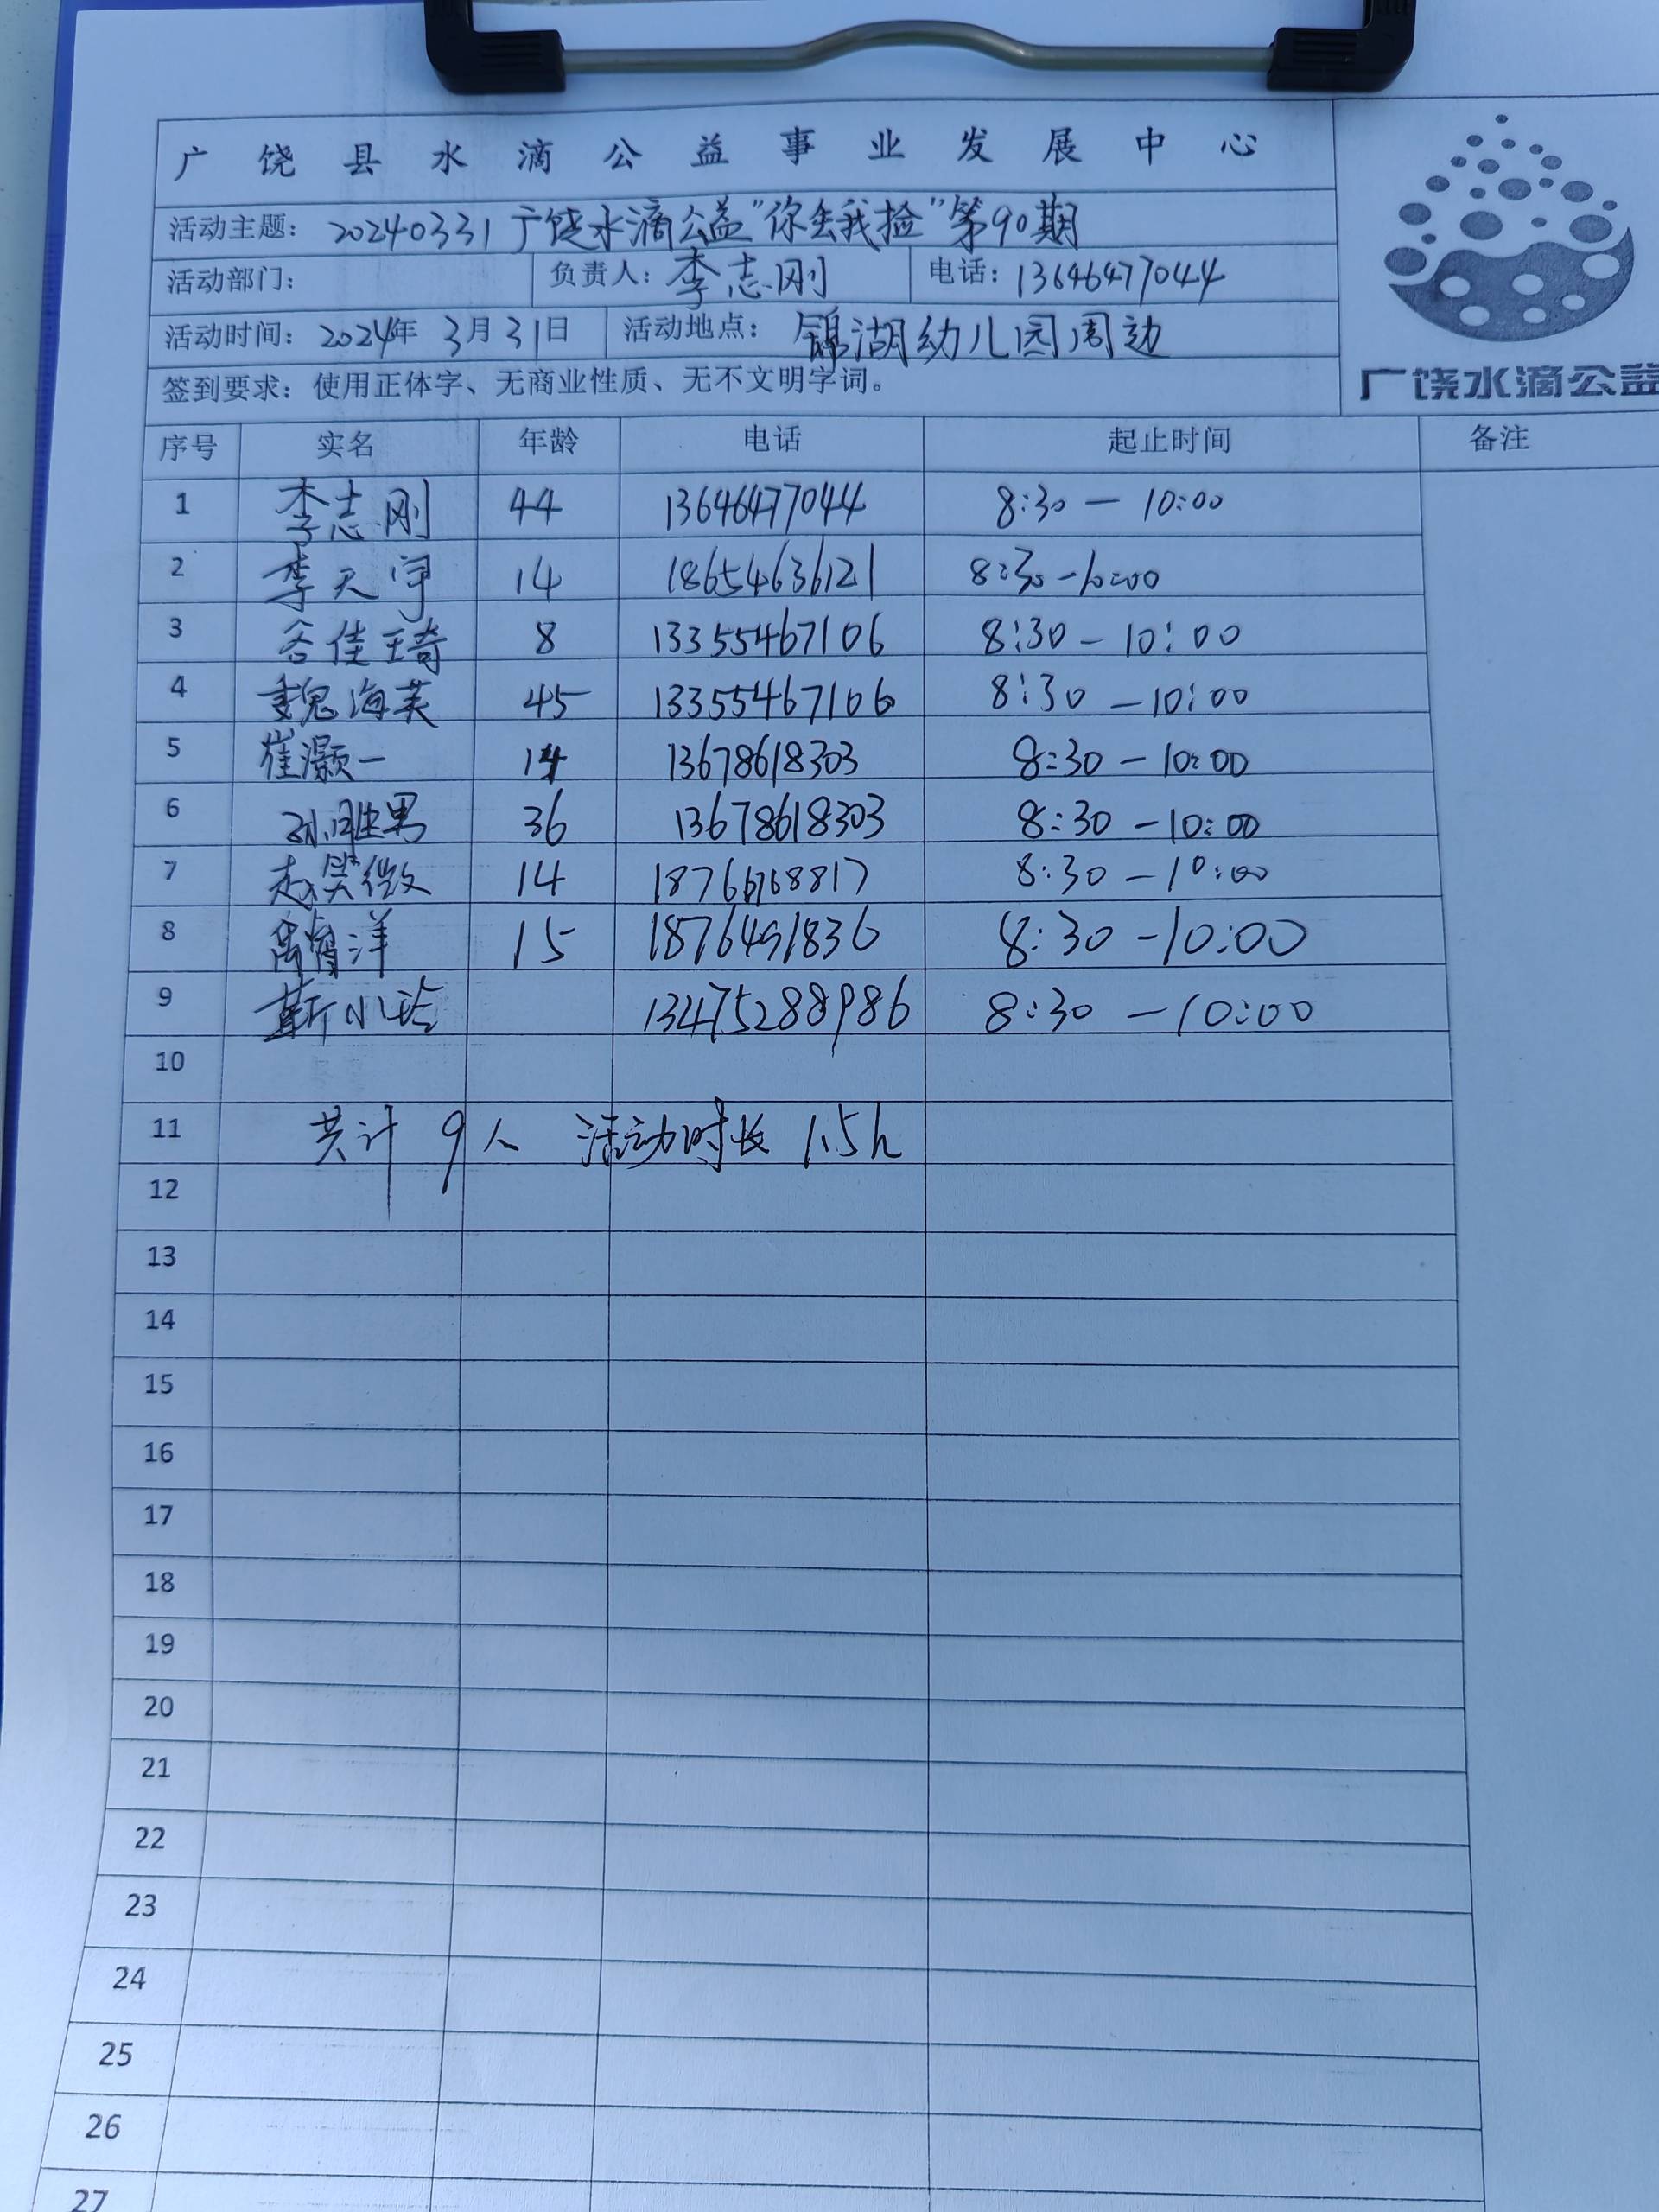 广饶县水滴公益事业发展中心
活动主题：20240331广饶水滴公益"你丢我捡"第90期
活动部门： 负责人：李志刚 电话：13646477044
活动时间：2024年3月31日 活动地点：锦湖幼儿园周边
签到要求：使用正体字、无商业性质、无不文明字词。
广饶水滴公益
序号 实名 年龄 电话 起止时间 备注
1 李志刚 44 13646477044 8:30—10:00
2 李天宇 14 18654636121 8:30-10:00
3 谷佳琦 8 13355467106 8:30-10:00
4 魏海英 45 13355467106 8:30-10:00
5 崔灏一 14 13678618303 8:30-10:00
6 孙胜男 36 13678618303 8:30-10:00
7 赵笑微 14 18766768817 8:30-10:00
8 洋 15 8:30-10:00
9 靳小玲 13475288986 8:30-10:00
10
11 共计9人 活动时长1.5h
12
13
14
15
16
17
18
19
20
21
22
23
24
25
26
27